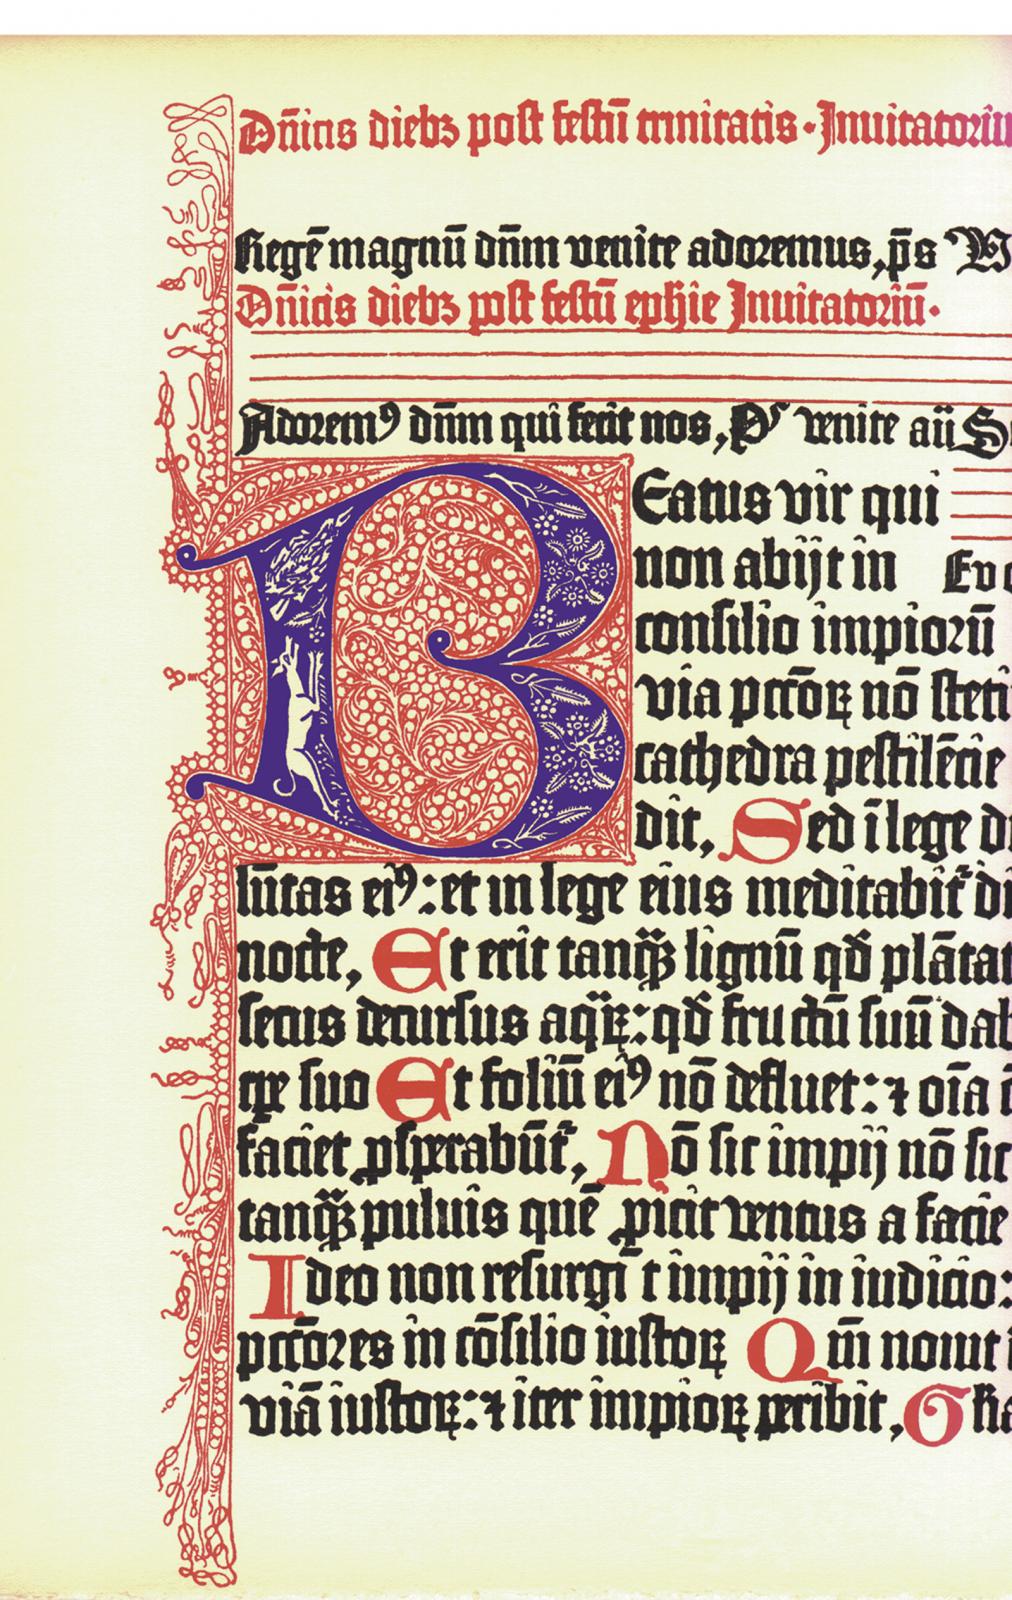 Dñicis diebꝫ post festū trinitatis. Inuitatoriū
Regē magnū dñm venite adoremus, p̄s
Dñicis diebꝫ post festū ephie Inuitatoriū.
Adoremꝰ dñm qui fecit nos, Pꝰ venite aū S
BEatus vir qui
non abijt in Evo
consilio impioꝝū
via pctōꝝ nō steti
cathedra pestilēcie
dit, Sed ī lege d
lūtas eiꝰ: et in lege eius meditabit᷑ di
nocte, Et erit tanq̄ꝫ lignū qd̄ plātat
secus decursus aqꝝ: qd̄ fructū suū dab
ꝑe suo Et foliū eiꝰ nō defluet: ⁊ oīa
faciet ꝓsperabūt᷑, Nō sic impij nō sic
tanq̄ꝫ puluis quē ꝓicit ventus a facie
Ideo non resurgūt impij in iudicio:
pctōres in cōsilio iustoꝝ Qm̄ nouit
viā iustoꝝ: ⁊ iter impioꝝ peribit, Glia